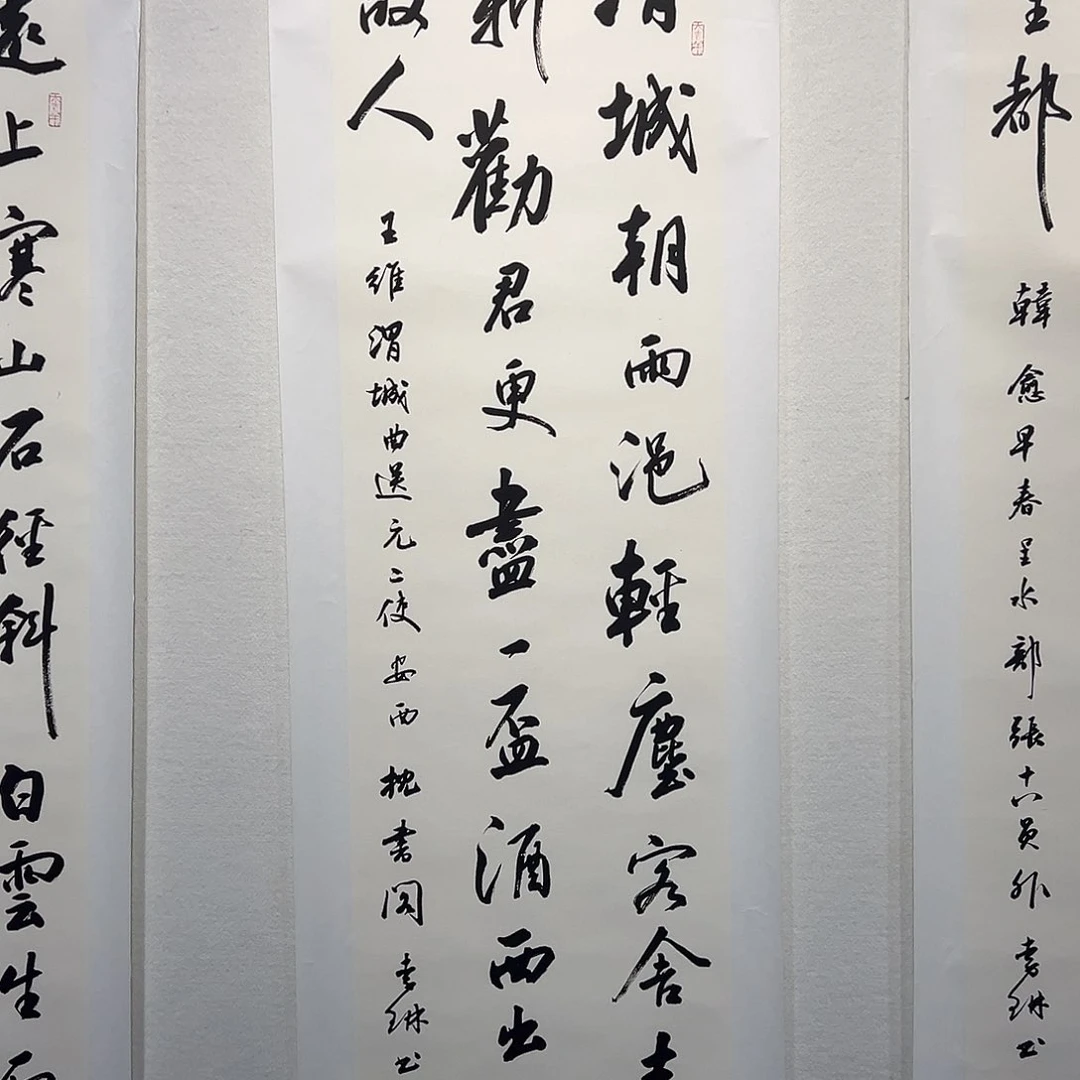 都
韓愈早春呈水部張十八員外 琳书
城朝雨浥輕塵客舍
新勸君更盡一盃酒西出
故人
王維渭城曲送元二使安西 枕書閣 琳书
遠上寒山石徑斜白雲生